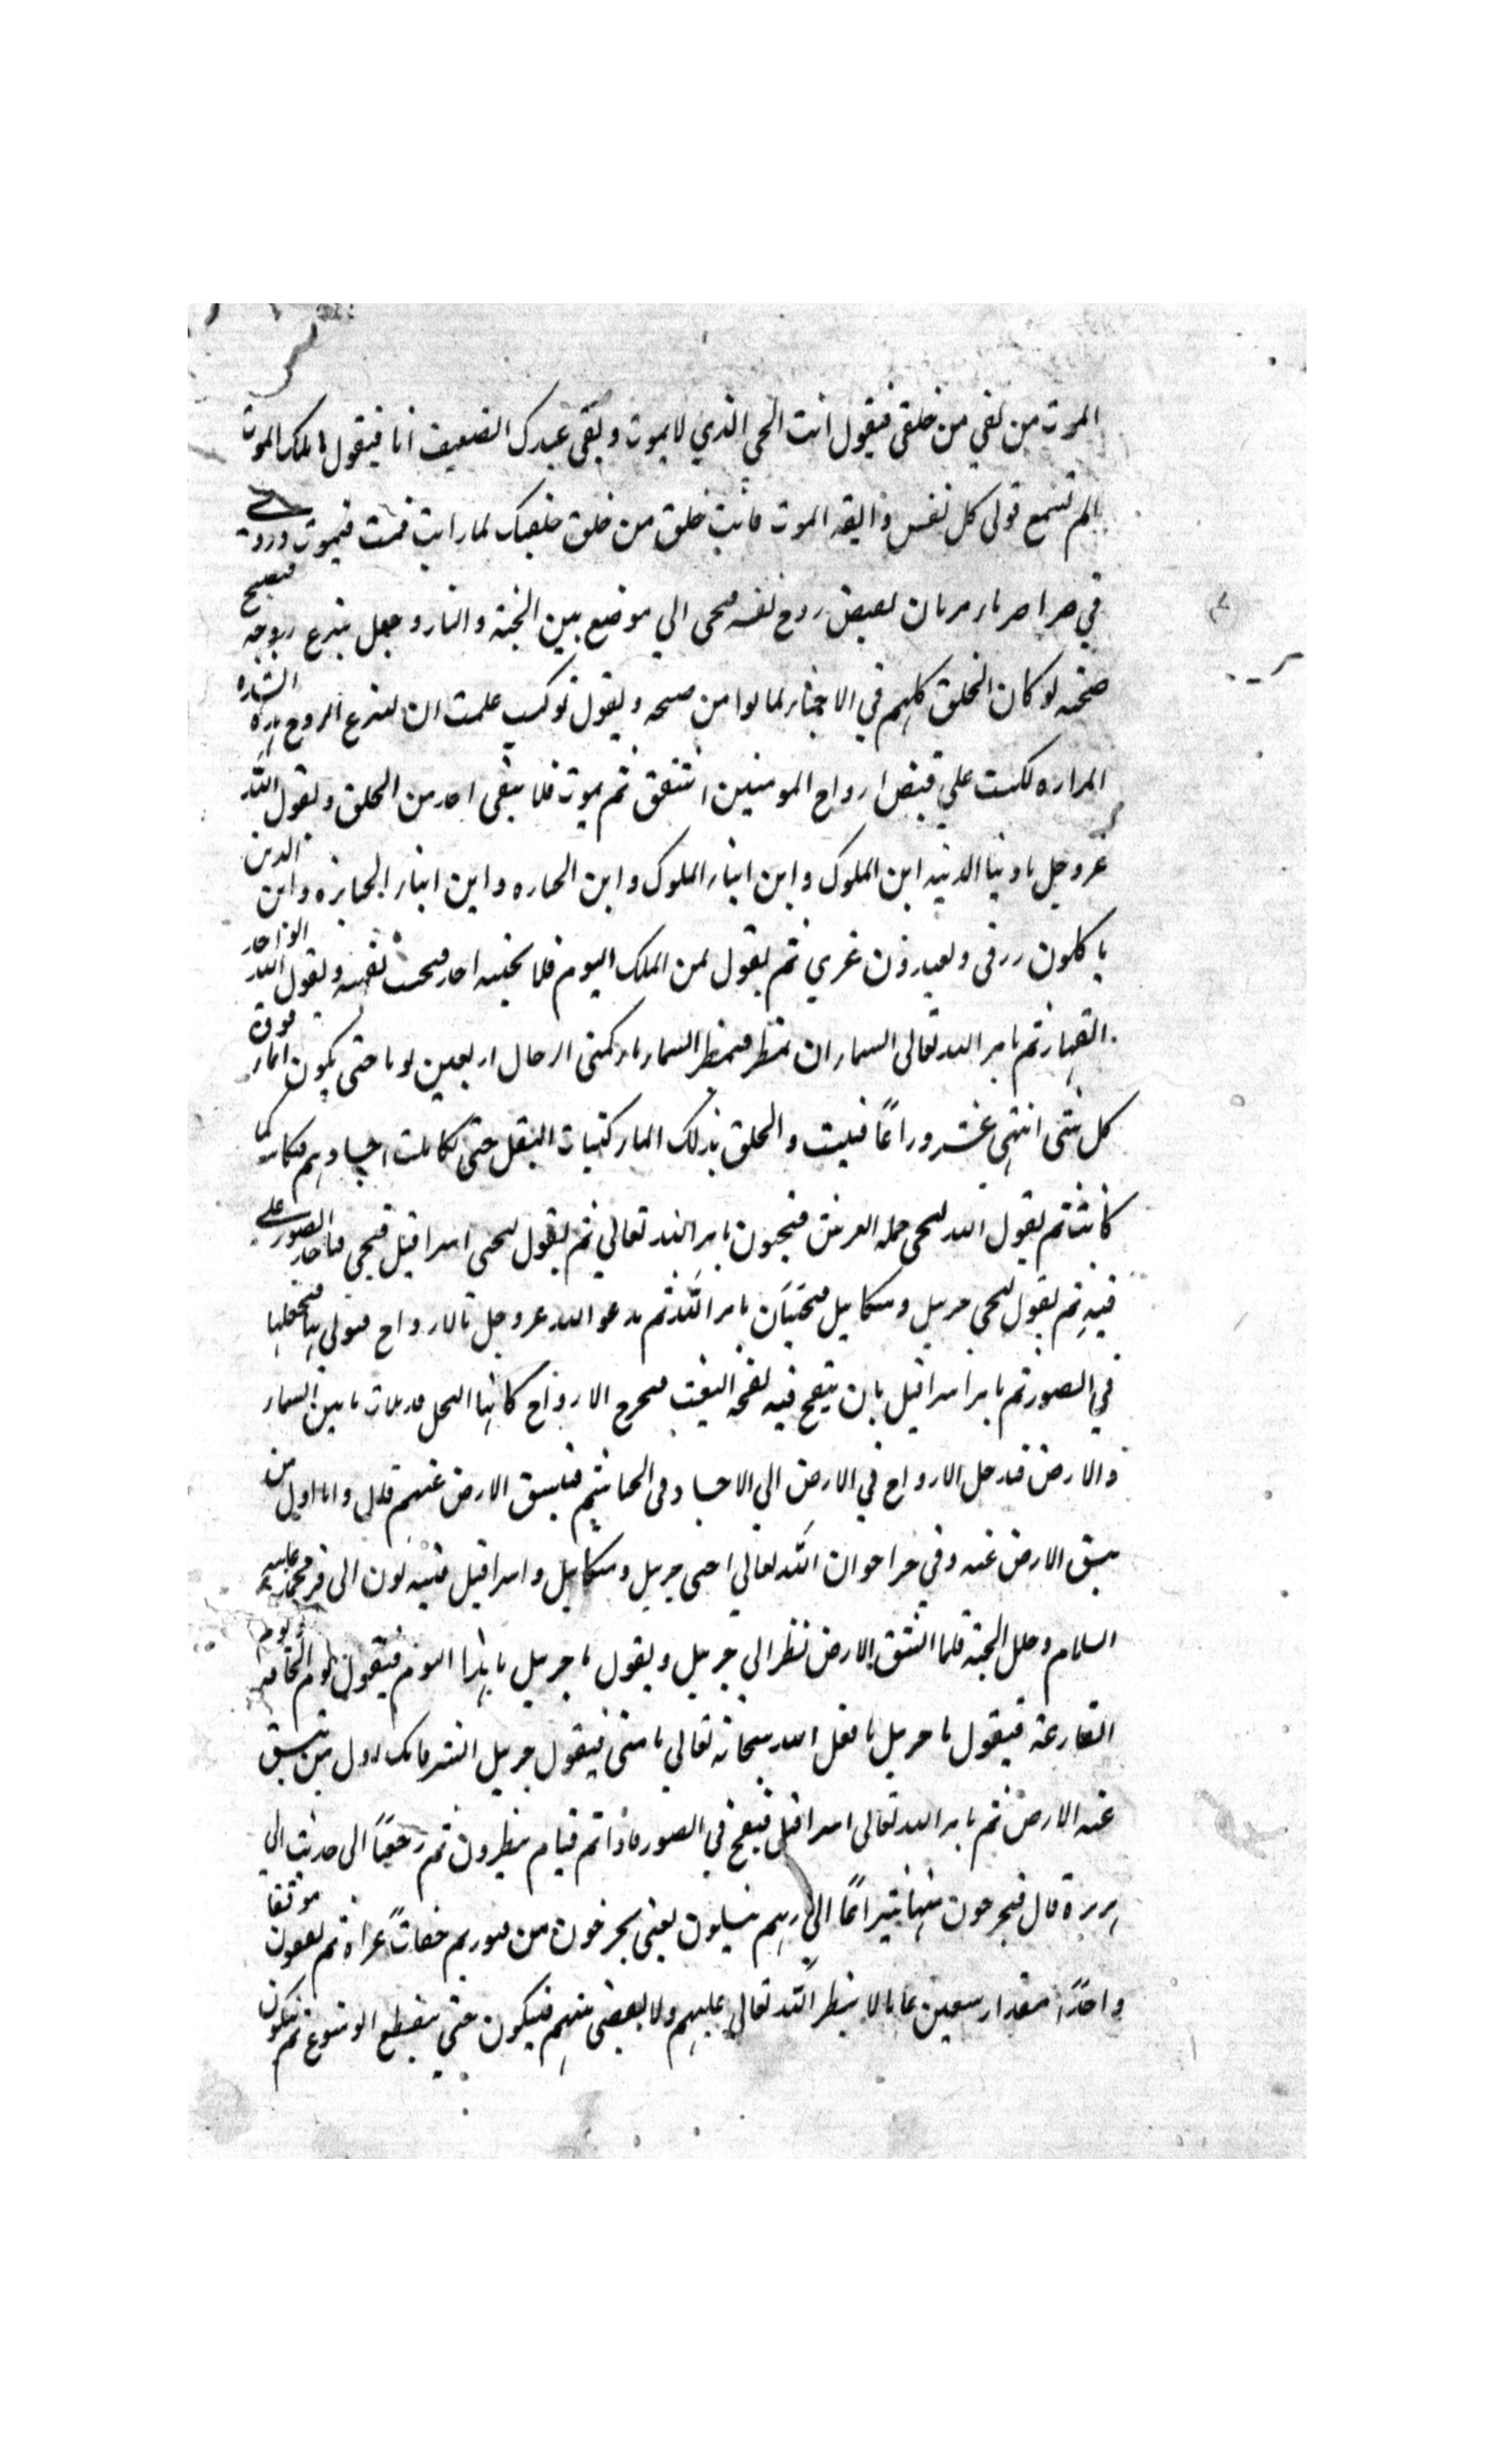 الموت من بقي من خلقي فيقول انت الحي الذي لا يموت وبقي عبدك الضعيف انا فيقول يا ملك الموت
الم تسمع قولي كل نفس ذايقة الموت فانت خلق من خلقي خلقتك لما رايت فمت فيموت وروي
في خبر اخر بان يقبض روح نفسه فيجي الي موضع بين الجنة والنار وجعل ينزع روحه فيصيح
صيحه لو كان الخلق كلهم في الاحياء لماتوا من صيحه ويقول لو كنت علمت ان لنزع الروح هذه الشده
المراره لكنت علي قبض ارواح المومنين اشفق ثم يموت فلا يبقي احد من الخلق ويقول الله
عز وجل يا دنيا الدنيه اين الملوك واين ابناء الملوك واين الجبابره واين ابناء الجبابره واين الذين
ياكلون رزقي ويعبدون غيري ثم يقول لمن الملك اليوم فلا يجيبه احد فيجيب نفسه ويقول لله الواحد
القهار ثم يامر الله تعالى السماء ان تمطر فيمطر السماء كمني الرجال اربعين يوما حتى يكون الماء فوق
كل شي اثني عشر ذراعًا فينبت الخلق بذلك الماء كنبات البقل حتى تكاملت اجسادهم فكانت كما
كانت ثم يقول الله ليحي حملة العرش فيحيون بامر الله تعالي ثم يقول ليحي اسرافيل فيحي فياخذ الصور علي
فيه ثم يقول ليحي جبريل وميكاييل فيحييان بامر الله ثم يدعو الله عز وجل بالارواح فيوتي بها فيجعلها
في الصور ثم يامر اسرافيل بان ينفخ فيه نفخة البعث فيخرج الارواح كانها النحل قد ملات ما بين السماء
والارض فيدخل الارواح في الارض الي الاجساد في الخياشيم فينشق الارض عنهم قال وانا اول من
ينشق الارض عنه وفي خبر اخر ان الله تعالي احيى جبريل وميكاييل واسرافيل فينزلون الى قبر محمد عليه
السلام وحلل الجنة فلما انشق الارض نظر الي جبريل ويقول يا جبريل ما هذا اليوم فيقول يوم الحاقه ويوم
القارعة فيقول يا جبريل ما فعل الله سبحانه تعالي بامتي فيقول جبريل ابشر فانك اول من تنشق
عنه الارض ثم يامر الله تعالى اسرافيل فينفخ في الصور فاذا هم قيام ينظرون ثم رجعنا الى حديث ابي
هريرة قال فيخرجون منها سراعًا الي ربهم ينسلون يعني يخرجون من قبورهم حفاتًا عراة ثم يقفون موقفا
واحدًا مقدار سبعين عاما لا ينظر الله تعالي عليهم ولا يقضي بينهم فيبكون حتي ينقطع الدموع ثم يبكون